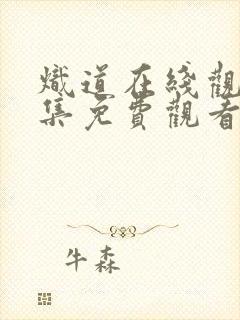 熾道在綫觀
集免費觀看
牛森